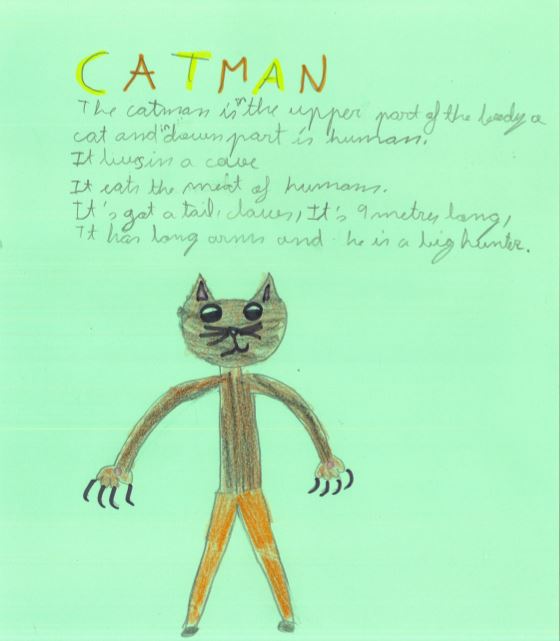 CATMAN
The catman is in the upper part of the body a
cat and in down part is human.
It lives in a cave
It eats the meat of humans.
It's got a tail, claws, It's 9 metres long,
It has long arms and he is a big hunter.